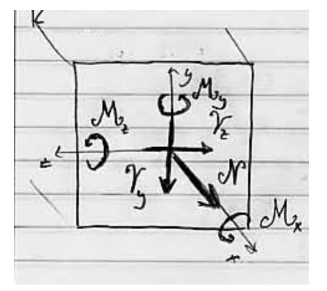 K
y
M_y
M_z
V_z
z
V_y
N
M_x
x